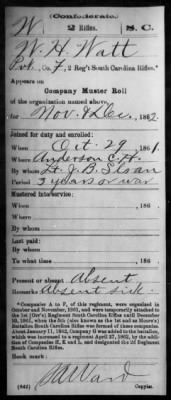 (Confederate.)
W 2 Rifles. S.C.
W. H. Watt
Pvt., Co. F, 2 Reg't South Carolina Rifles.*
Appears on
Company Muster Roll
of the organization named above,
for Nov. & Dec., 1862.
Joined for duty and enrolled:
When Oct 29, 1861.
Where Anderson C.H.
By whom Lt. J. B. Sloan
Period 3 years or war
Mustered into service:
When , 186 .
Where
By whom
Last paid:
By whom
To what time , 186 .
Present or absent Absent
Remarks: Absent sick.
*Companies A to F, of this regiment, were organized in
October and November, 1861, and were temporarily attached to
the 1st (Orr's) Regiment South Carolina Rifles until December
Battalion South Carolina Rifles was formed of these companies.
About January 11, 1862, Company G was added to the battalion,
which was increased to a regiment April 27, 1862, by the addition
of Companies H, K and L, and designated the 2d Regiment
South Carolina Rifles.
Book mark:
(642)
Copyist.